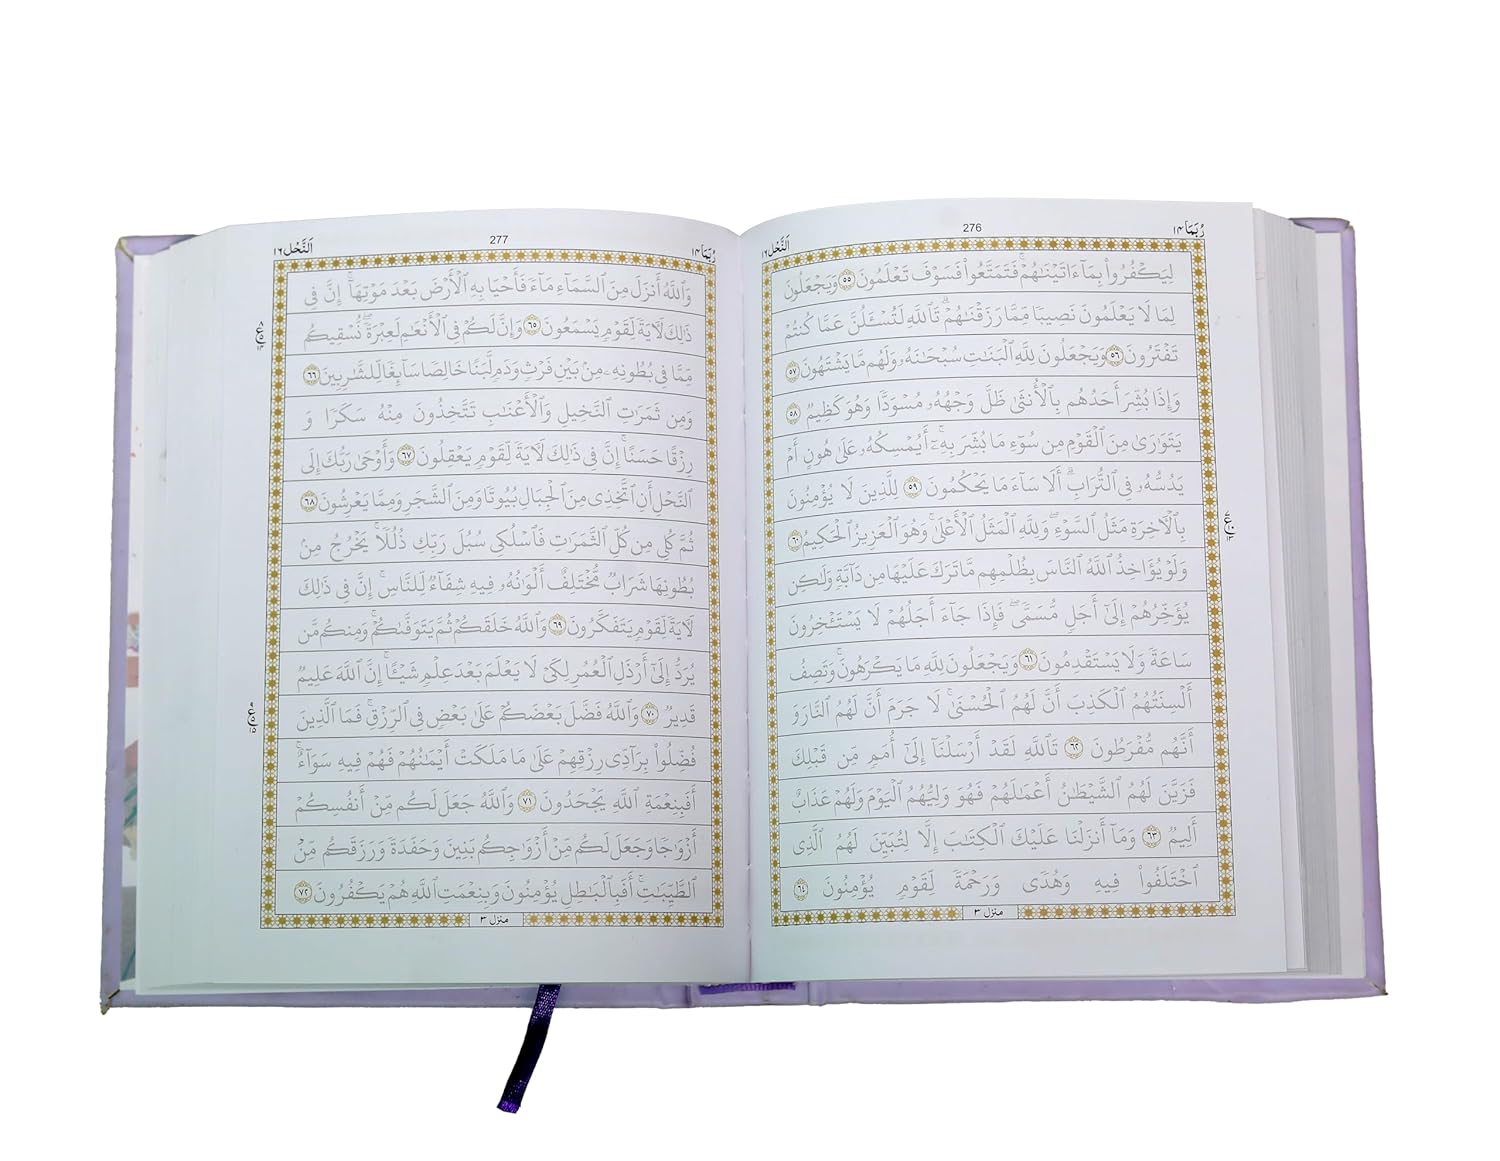 رُبَمَا ١٤
276
اَلنَّحْل ١٦
لِيَكْفُرُواْ بِمَآ ءَاتَيْنَٰهُمْۚ فَتَمَتَّعُواْ فَسَوْفَ تَعْلَمُونَ ٥٥ وَيَجْعَلُونَ
لِمَا لَا يَعْلَمُونَ نَصِيبًا مِّمَّا رَزَقْنَٰهُمْۗ تَٱللَّهِ لَتُسْـَٔلُنَّ عَمَّا كُنتُمْ
تَفْتَرُونَ ٥٦ وَيَجْعَلُونَ لِلَّهِ ٱلْبَنَٰتِ سُبْحَٰنَهُۥ وَلَهُم مَّا يَشْتَهُونَ ٥٧
وَإِذَا بُشِّرَ أَحَدُهُم بِٱلْأُنثَىٰ ظَلَّ وَجْهُهُۥ مُسْوَدًّا وَهُوَ كَظِيمٌ ٥٨
يَتَوَٰرَىٰ مِنَ ٱلْقَوْمِ مِن سُوٓءِ مَا بُشِّرَ بِهِۦٓۚ أَيُمْسِكُهُۥ عَلَىٰ هُونٍ أَمْ
يَدُسُّهُۥ فِى ٱلتُّرَابِۗ أَلَا سَآءَ مَا يَحْكُمُونَ ٥٩ لِلَّذِينَ لَا يُؤْمِنُونَ
بِٱلْأٓخِرَةِ مَثَلُ ٱلسَّوْءِۖ وَلِلَّهِ ٱلْمَثَلُ ٱلْأَعْلَىٰۚ وَهُوَ ٱلْعَزِيزُ ٱلْحَكِيمُ ٦٠
وَلَوْ يُؤَاخِذُ ٱللَّهُ ٱلنَّاسَ بِظُلْمِهِم مَّا تَرَكَ عَلَيْهَا مِن دَآبَّةٍ وَلَٰكِن
يُؤَخِّرُهُمْ إِلَىٰٓ أَجَلٍ مُّسَمًّىۖ فَإِذَا جَآءَ أَجَلُهُمْ لَا يَسْتَـْٔخِرُونَ
سَاعَةً وَلَا يَسْتَقْدِمُونَ ٦١ وَيَجْعَلُونَ لِلَّهِ مَا يَكْرَهُونَۚ وَتَصِفُ
أَلْسِنَتُهُمُ ٱلْكَذِبَ أَنَّ لَهُمُ ٱلْحُسْنَىٰۚ لَا جَرَمَ أَنَّ لَهُمُ ٱلنَّارَ وَ
أَنَّهُم مُّفْرَطُونَ ٦٢ تَٱللَّهِ لَقَدْ أَرْسَلْنَآ إِلَىٰٓ أُمَمٍ مِّن قَبْلِكَ
فَزَيَّنَ لَهُمُ ٱلشَّيْطَٰنُ أَعْمَٰلَهُمْ فَهُوَ وَلِيُّهُمُ ٱلْيَوْمَ وَلَهُمْ عَذَابٌ
أَلِيمٌ ٦٣ وَمَآ أَنزَلْنَا عَلَيْكَ ٱلْكِتَٰبَ إِلَّا لِتُبَيِّنَ لَهُمُ ٱلَّذِى
ٱخْتَلَفُواْ فِيهِ وَهُدًى وَرَحْمَةً لِّقَوْمٍ يُؤْمِنُونَ ٦٤
منزل ٣
رُبَمَا ١٤
277
اَلنَّحْل ١٦
وَٱللَّهُ أَنزَلَ مِنَ ٱلسَّمَآءِ مَآءً فَأَحْيَا بِهِ ٱلْأَرْضَ بَعْدَ مَوْتِهَآۚ إِنَّ فِى
ذَٰلِكَ لَأٓيَةً لِّقَوْمٍ يَسْمَعُونَ ٦٥ وَإِنَّ لَكُمْ فِى ٱلْأَنْعَٰمِ لَعِبْرَةًۖ نُّسْقِيكُم
مِّمَّا فِى بُطُونِهِۦ مِنۢ بَيْنِ فَرْثٍ وَدَمٍ لَّبَنًا خَالِصًا سَآئِغًا لِّلشَّٰرِبِينَ ٦٦
وَمِن ثَمَرَٰتِ ٱلنَّخِيلِ وَٱلْأَعْنَٰبِ تَتَّخِذُونَ مِنْهُ سَكَرًا وَ
رِزْقًا حَسَنًاۗ إِنَّ فِى ذَٰلِكَ لَأٓيَةً لِّقَوْمٍ يَعْقِلُونَ ٦٧ وَأَوْحَىٰ رَبُّكَ إِلَى
ٱلنَّحْلِ أَنِ ٱتَّخِذِى مِنَ ٱلْجِبَالِ بُيُوتًا وَمِنَ ٱلشَّجَرِ وَمِمَّا يَعْرِشُونَ ٦٨
ثُمَّ كُلِى مِن كُلِّ ٱلثَّمَرَٰتِ فَٱسْلُكِى سُبُلَ رَبِّكِ ذُلُلًاۚ يَخْرُجُ مِنۢ
بُطُونِهَا شَرَابٌ مُّخْتَلِفٌ أَلْوَٰنُهُۥ فِيهِ شِفَآءٌ لِّلنَّاسِۚ إِنَّ فِى ذَٰلِكَ
لَأٓيَةً لِّقَوْمٍ يَتَفَكَّرُونَ ٦٩ وَٱللَّهُ خَلَقَكُمْ ثُمَّ يَتَوَفَّىٰكُمْۚ وَمِنكُم مَّن
يُرَدُّ إِلَىٰٓ أَرْذَلِ ٱلْعُمُرِ لِكَىْ لَا يَعْلَمَ بَعْدَ عِلْمٍ شَيْـًٔاۚ إِنَّ ٱللَّهَ عَلِيمٌ
قَدِيرٌ ٧٠ وَٱللَّهُ فَضَّلَ بَعْضَكُمْ عَلَىٰ بَعْضٍ فِى ٱلرِّزْقِۚ فَمَا ٱلَّذِينَ
فُضِّلُواْ بِرَآدِّى رِزْقِهِمْ عَلَىٰ مَا مَلَكَتْ أَيْمَٰنُهُمْ فَهُمْ فِيهِ سَوَآءٌۚ
أَفَبِنِعْمَةِ ٱللَّهِ يَجْحَدُونَ ٧١ وَٱللَّهُ جَعَلَ لَكُم مِّنْ أَنفُسِكُمْ
أَزْوَٰجًا وَجَعَلَ لَكُم مِّنْ أَزْوَٰجِكُم بَنِينَ وَحَفَدَةً وَرَزَقَكُم مِّنَ
ٱلطَّيِّبَٰتِۚ أَفَبِٱلْبَٰطِلِ يُؤْمِنُونَ وَبِنِعْمَتِ ٱللَّهِ هُمْ يَكْفُرُونَ ٧٢
منزل ٣